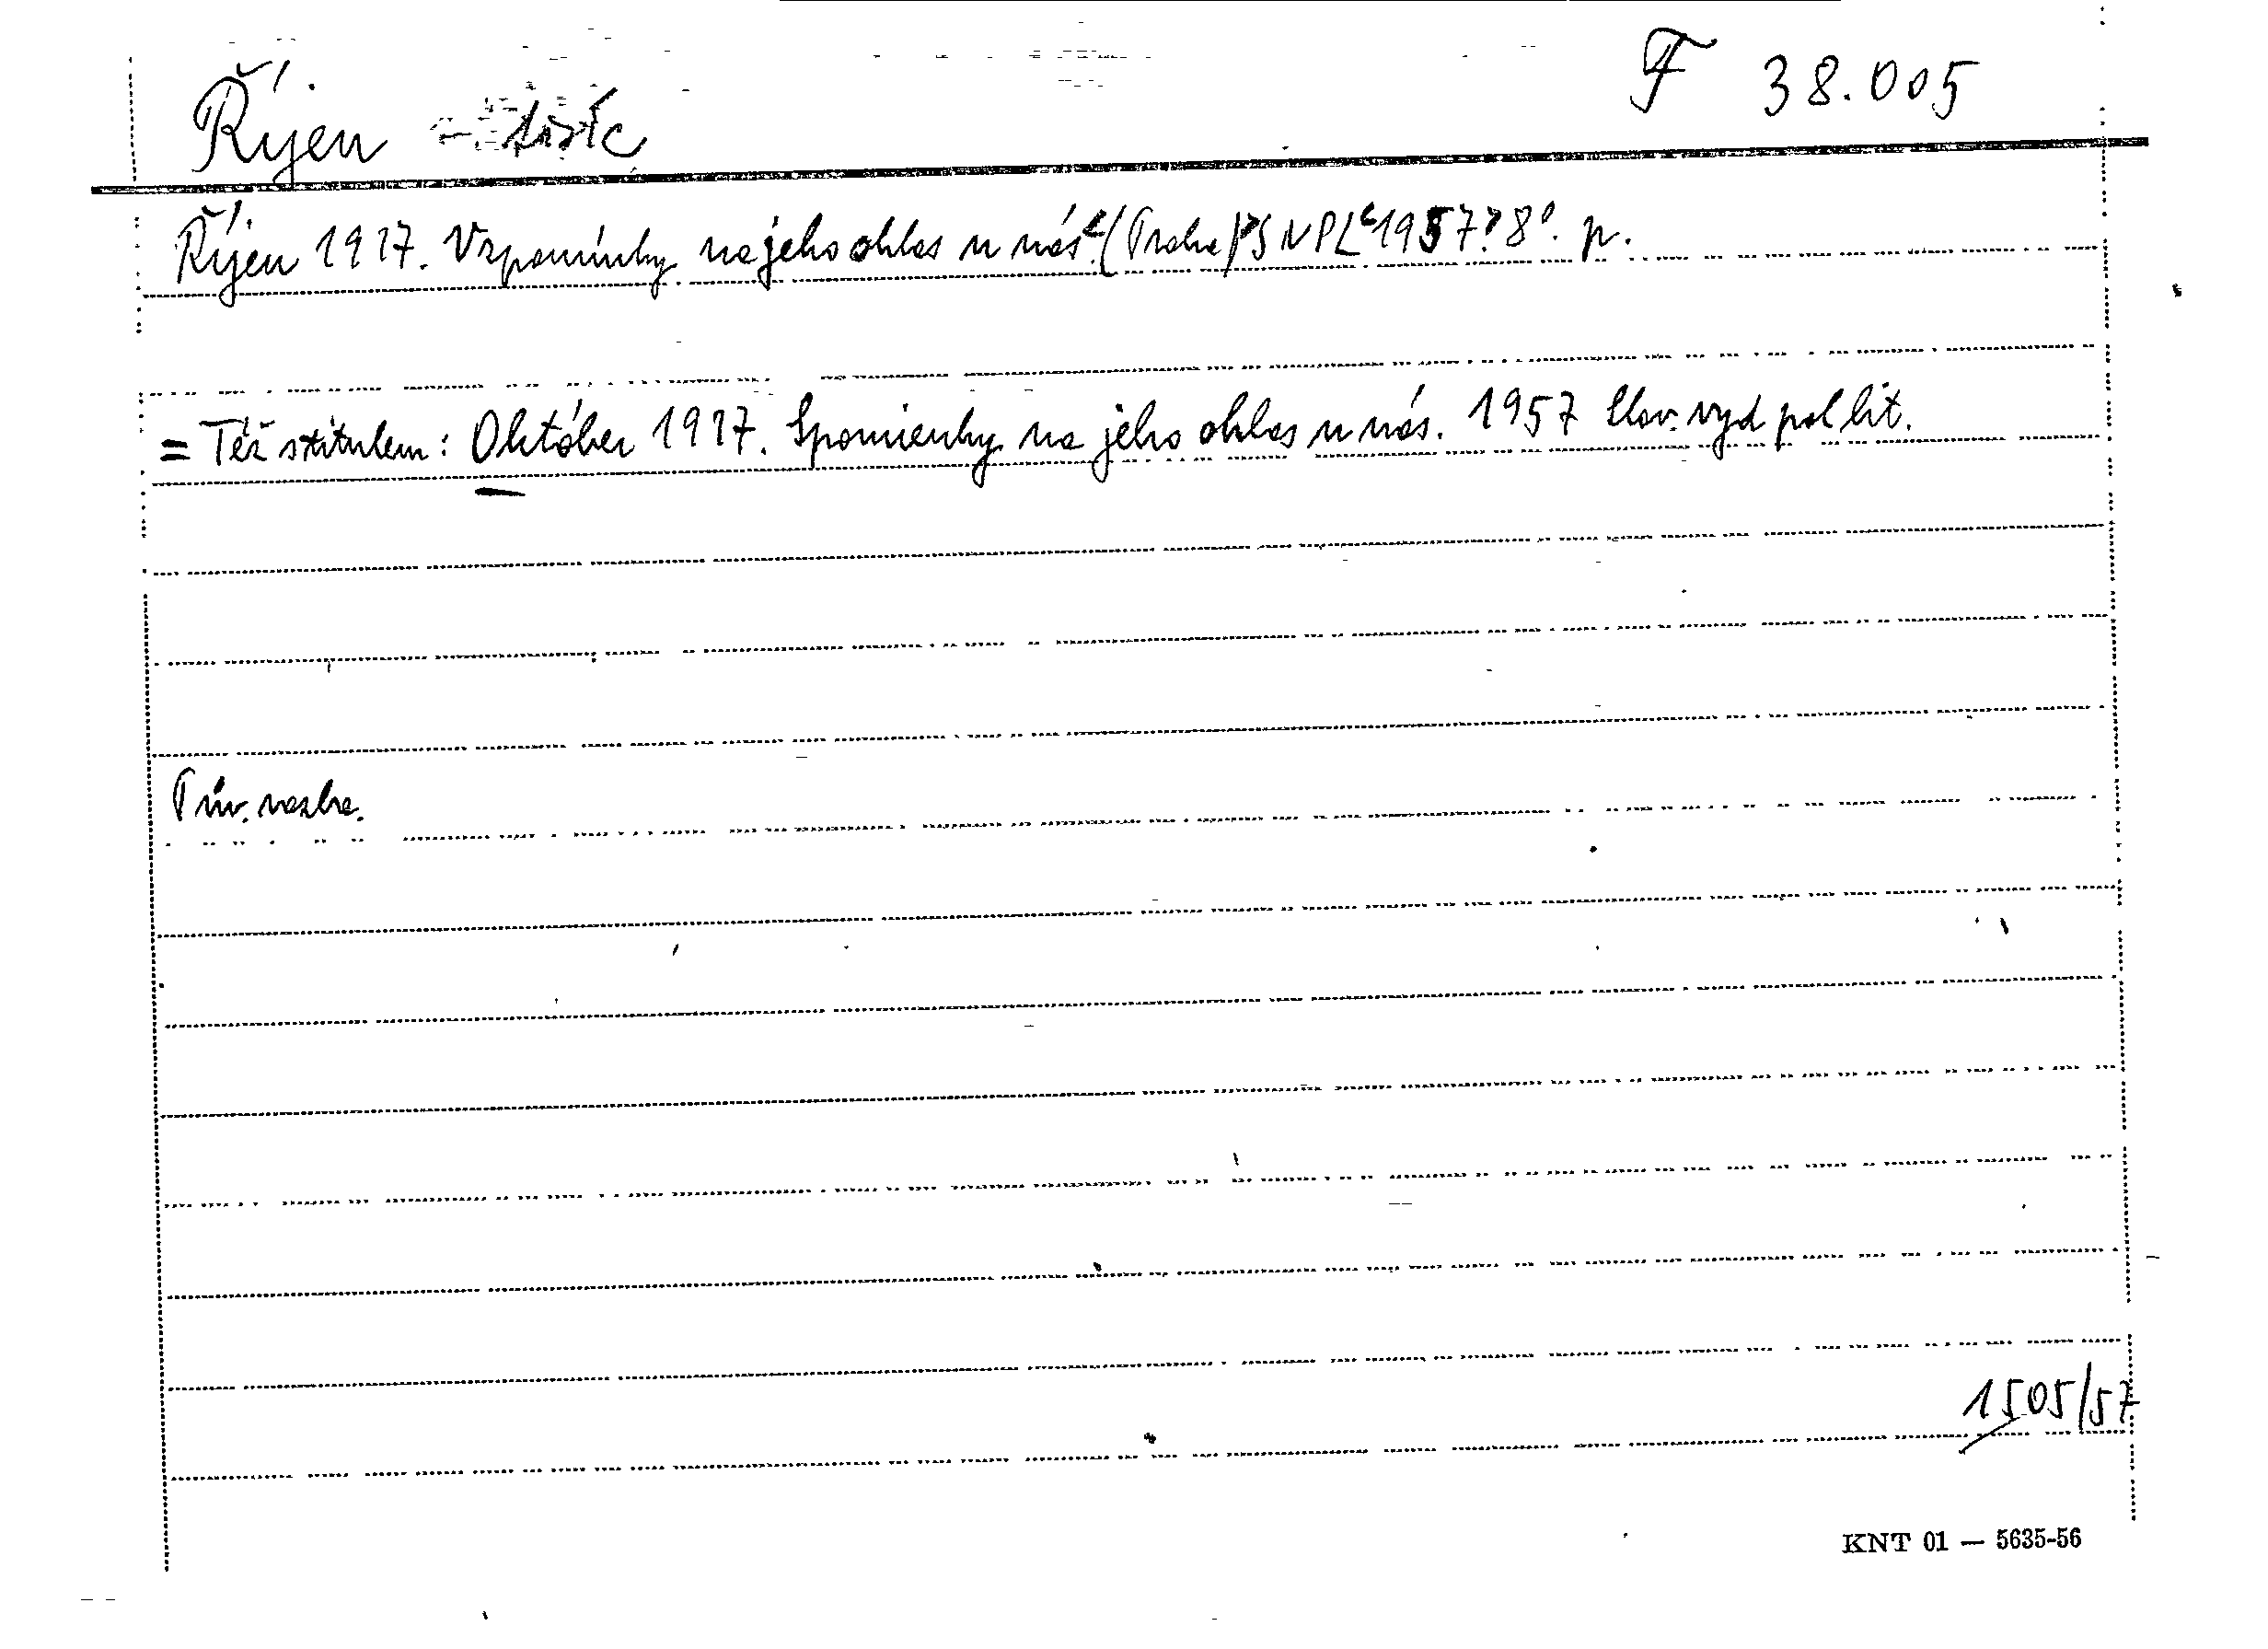 Říjen – tisíc
F 38.005
Říjen 1917. Vzpomínky na jeho ohlas u nás. (Praha) SNPL 1957. 8°. p.
= Též s titulem: Október 1917. Spomienky na jeho ohlas u nás. 1957 Slov. vyd pol lit.
Pův. vazba.
1505/57
KNT 01 — 5635-56